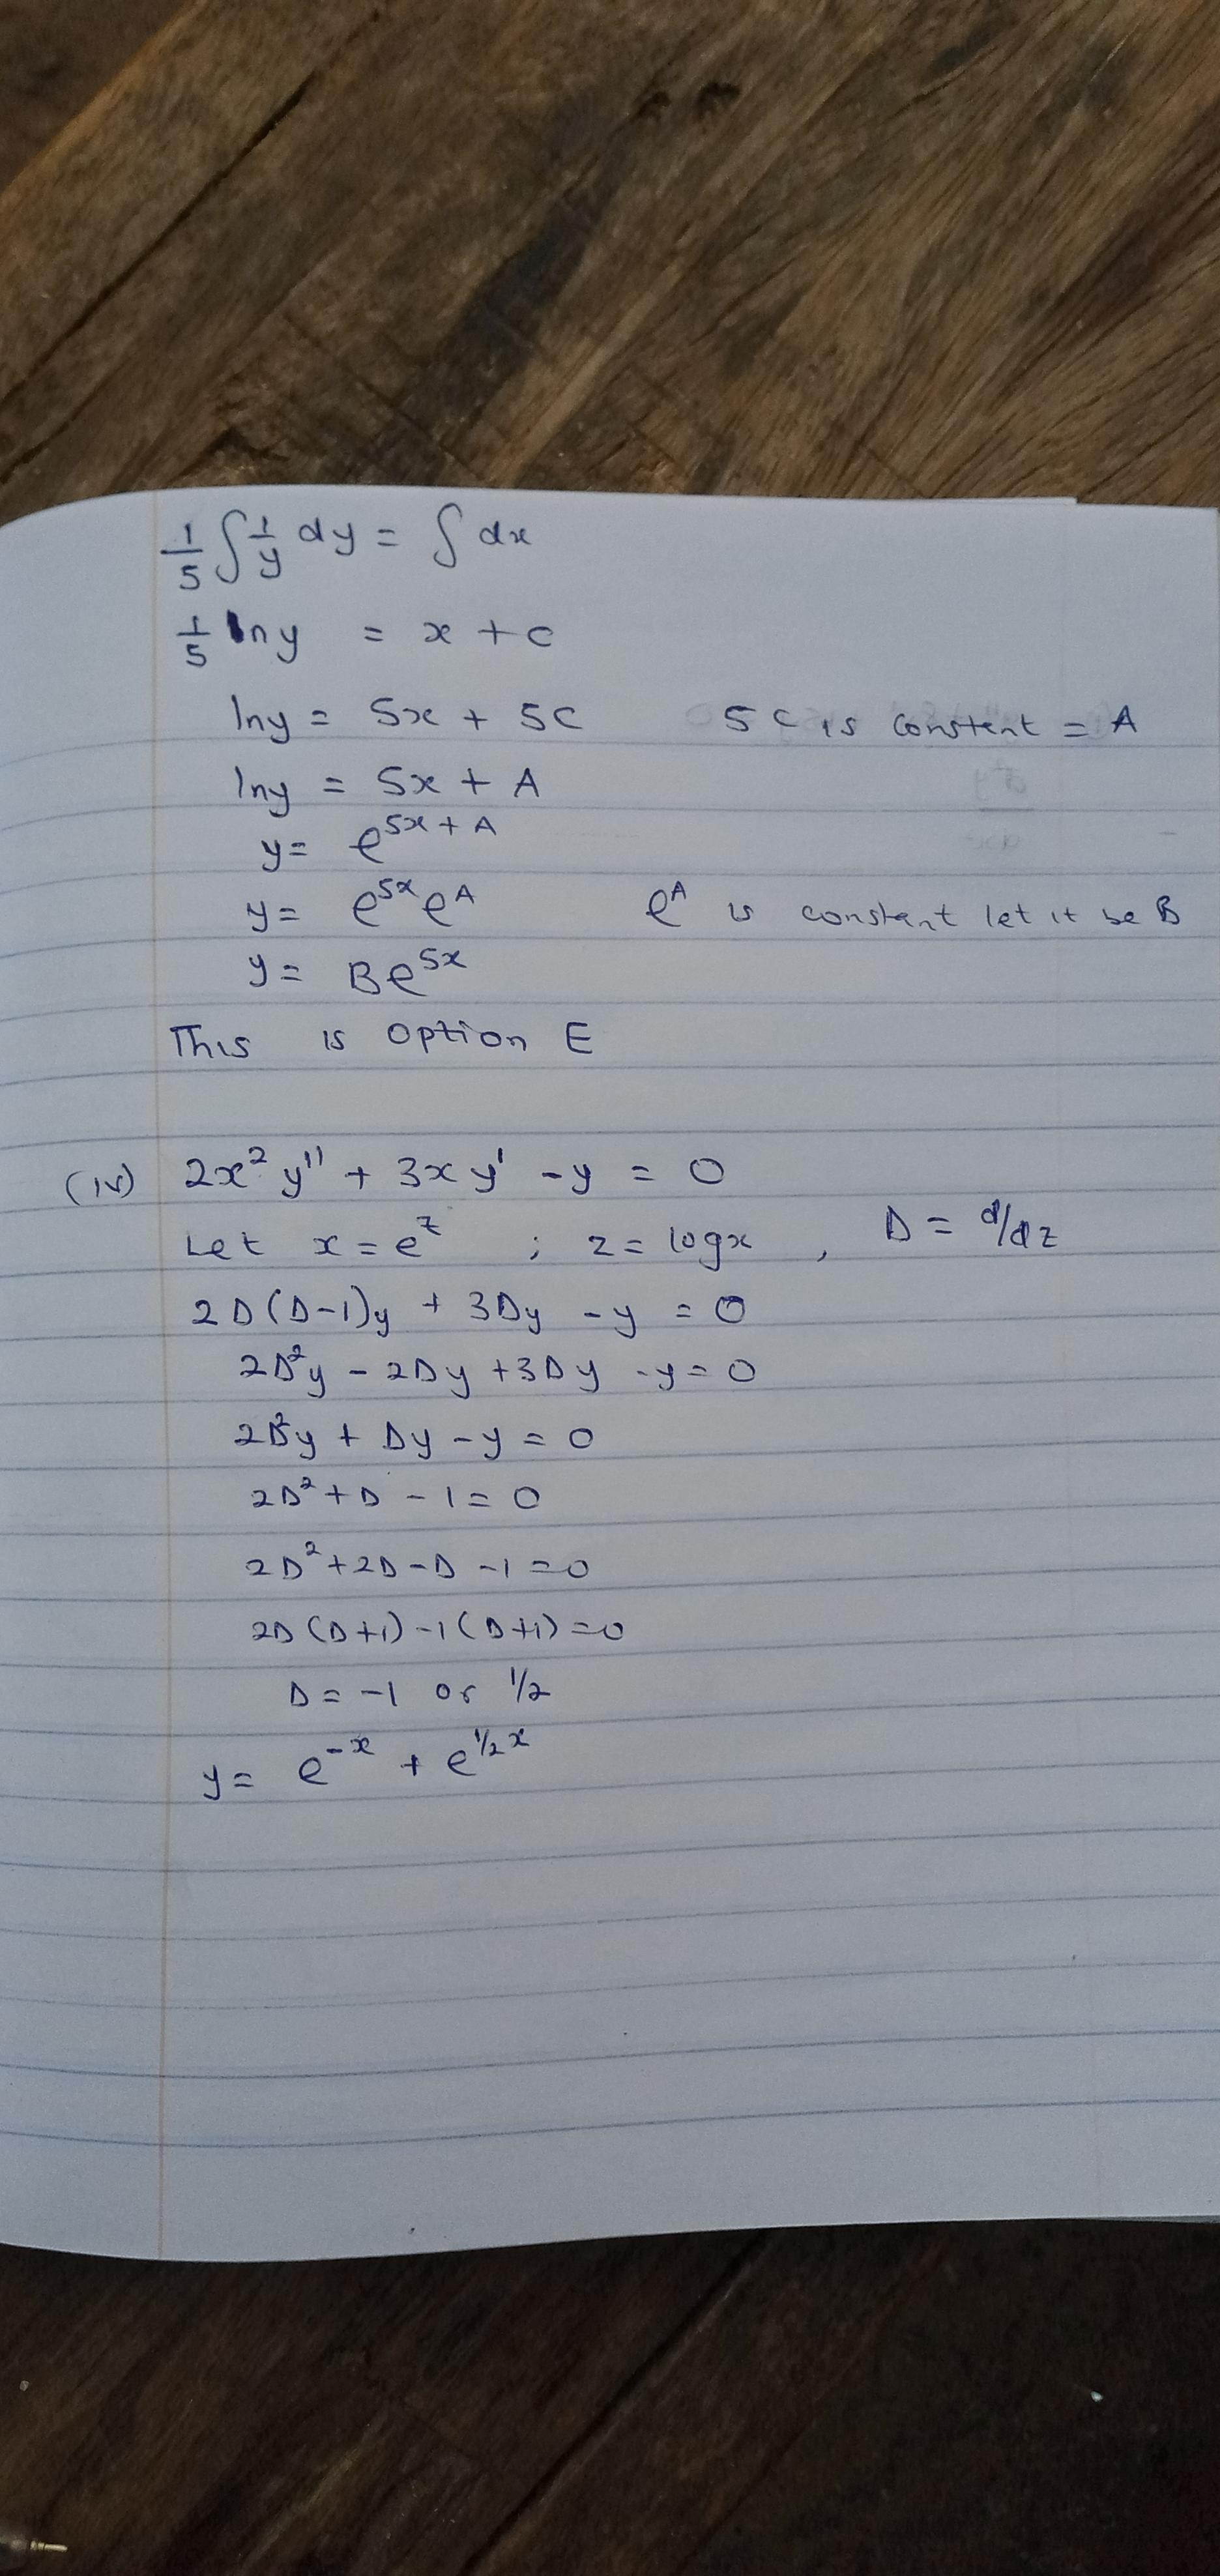 1/5 ∫ 1/y dy = ∫ dx
1/5 ln y = x + c
ln y = 5x + 5C 5C is constent = A
ln y = 5x + A
y = e^{5x + A}
y = e^{5x} e^A e^A is constent let it be B
y = Be^{5x}
This is option E
(iv) 2x² y'' + 3x y' - y = 0
Let x = e^z ; z = log x , D = d/dz
2D(D-1)y + 3Dy - y = 0
2D²y - 2Dy + 3Dy - y = 0
2D²y + Dy - y = 0
2D² + D - 1 = 0
2D² + 2D - D - 1 = 0
2D(D+1) - 1(D+1) = 0
D = -1 or 1/2
y = e^{-x} + e^{1/2 x}